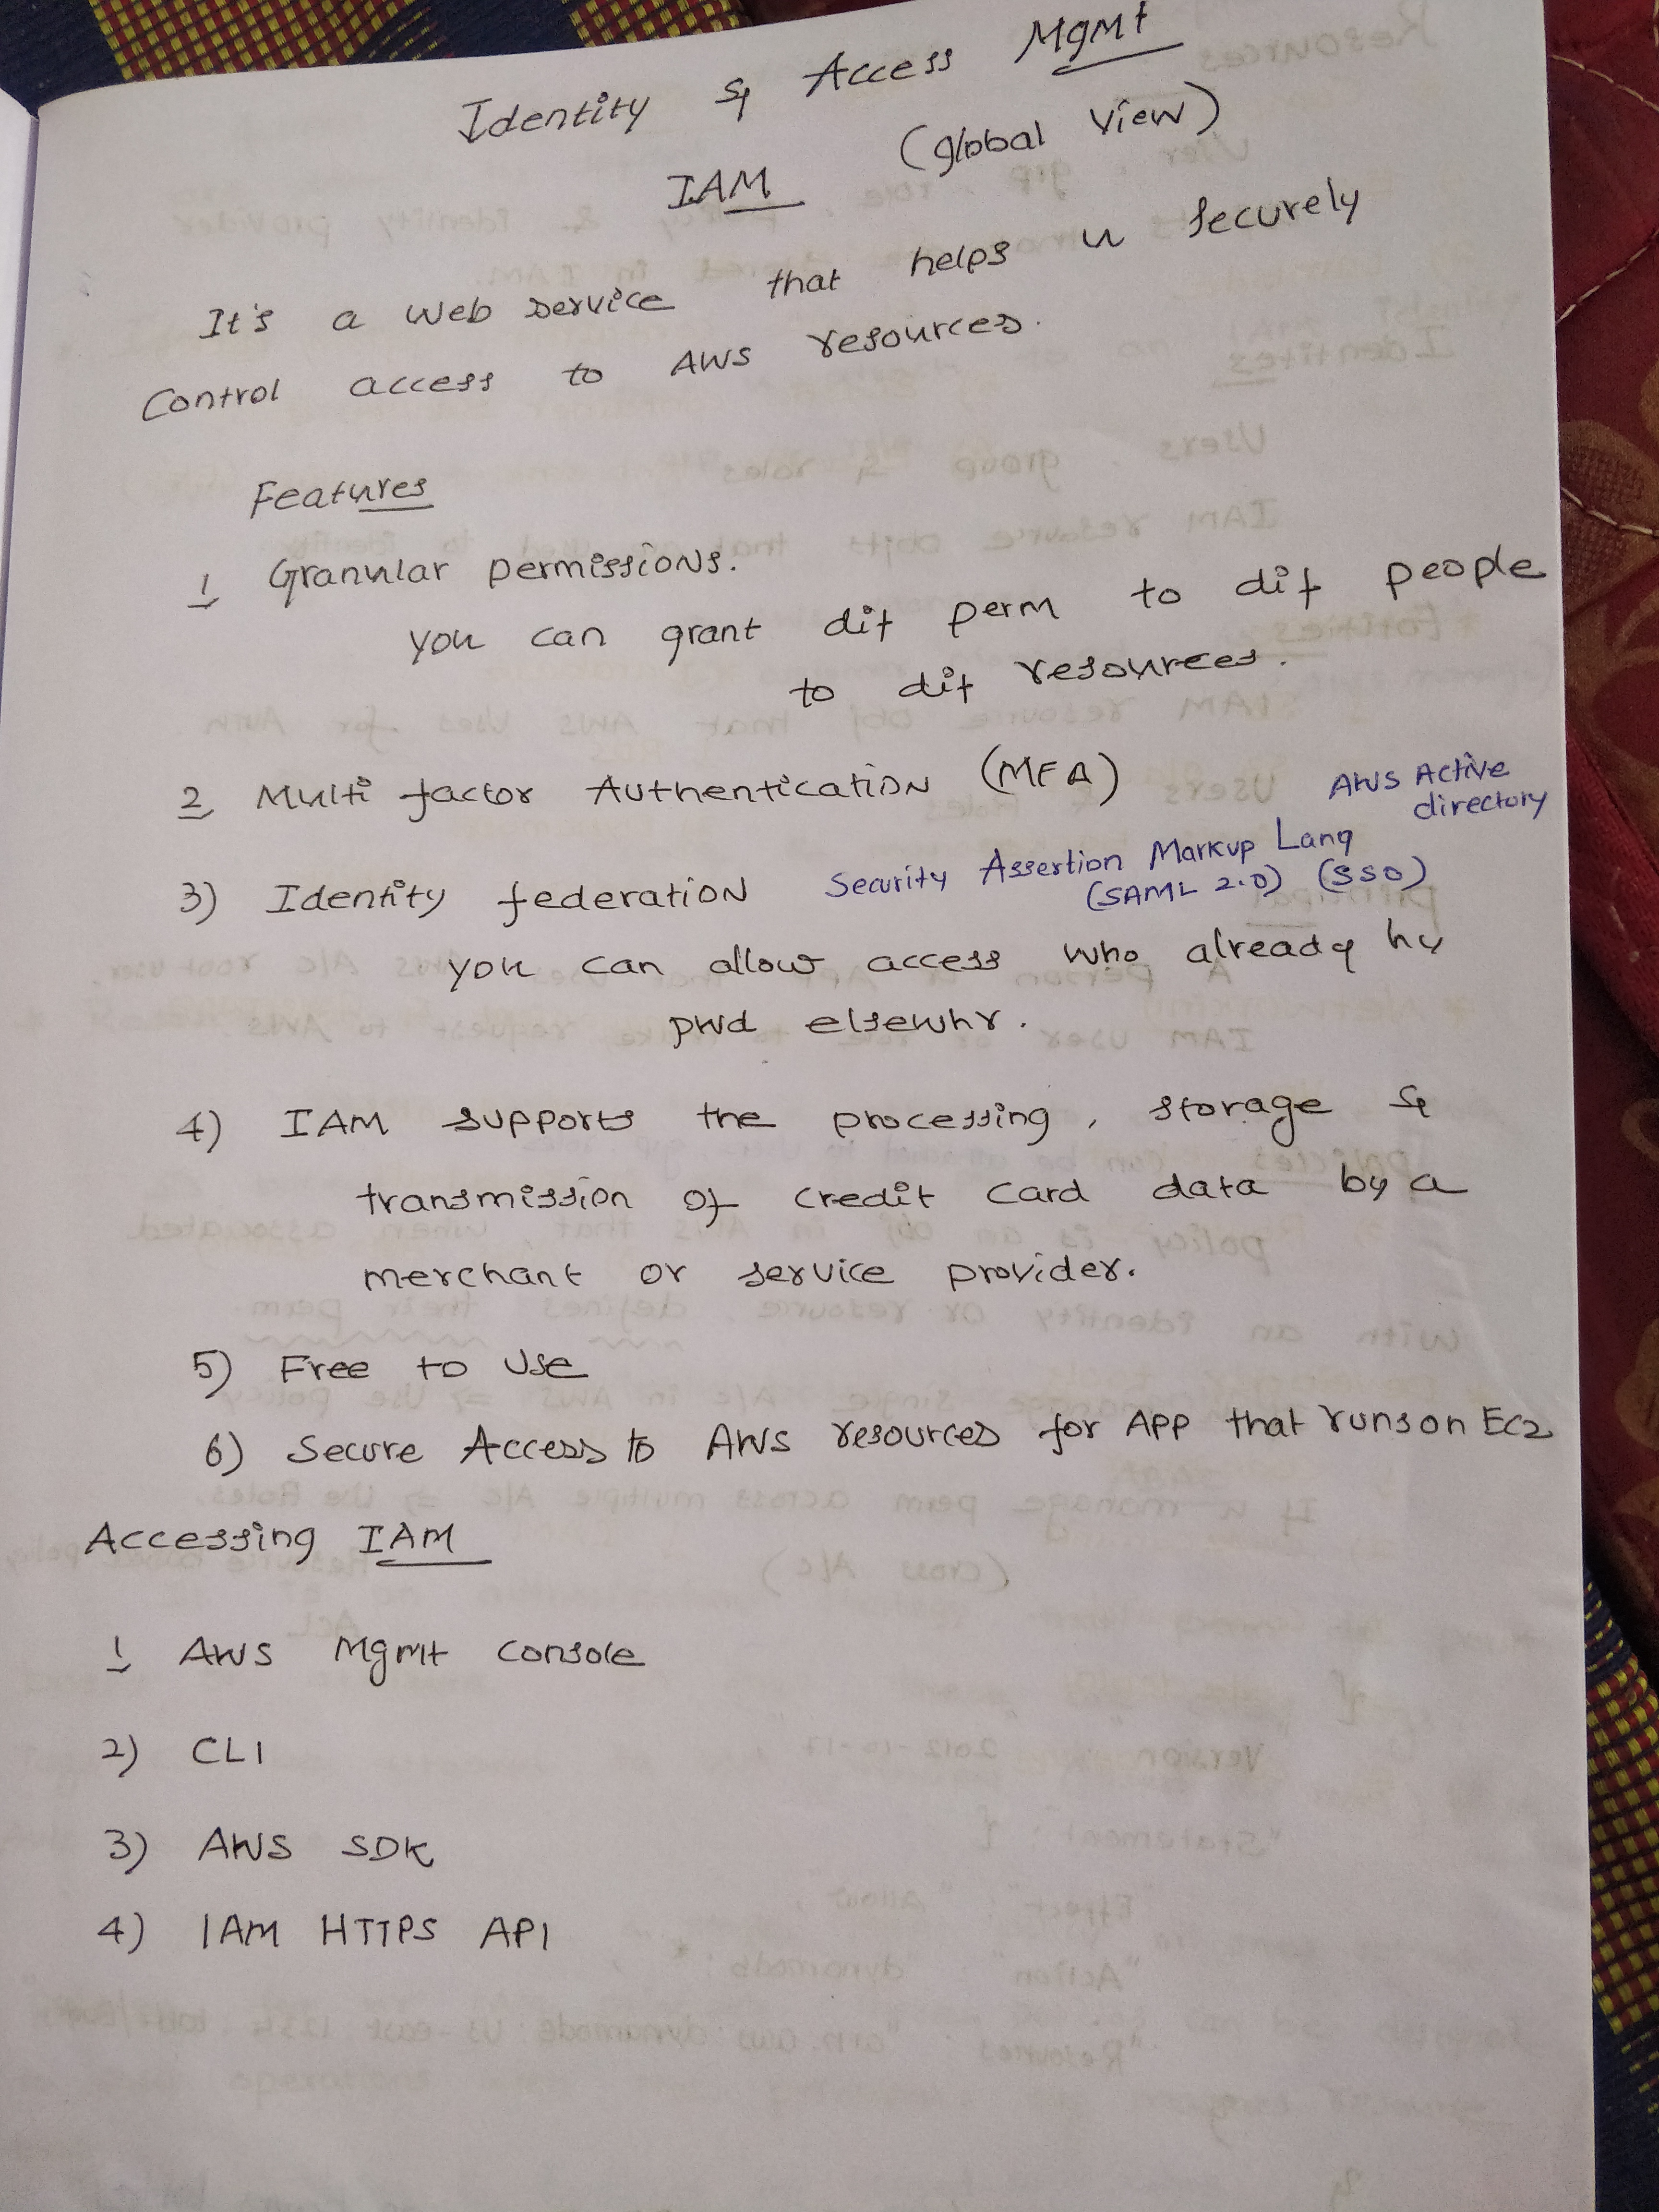 Identity & Access Mgmt
IAM (global view)
It's a web service that helps u securely
control access to AWS resources.
Features
1 Granular permissions.
you can grant dif perm to dif people
to dif resources.
2 Multi factor Authentication (MFA)
AWS Active
directory
3) Identity federation Security Assertion Markup Lang
(SAML 2.0) (SSO)
you can allow access who already hv
pwd elsewhr.
4) IAM supports the processing, storage &
transmission of credit card data by a
merchant or service provider.
5) Free to Use
6) Secure Access to AWS resources for APP that runs on EC2
Accessing IAM
1 AWS Mgmt console
2) CLI
3) AWS SDK
4) IAM HTTPS API